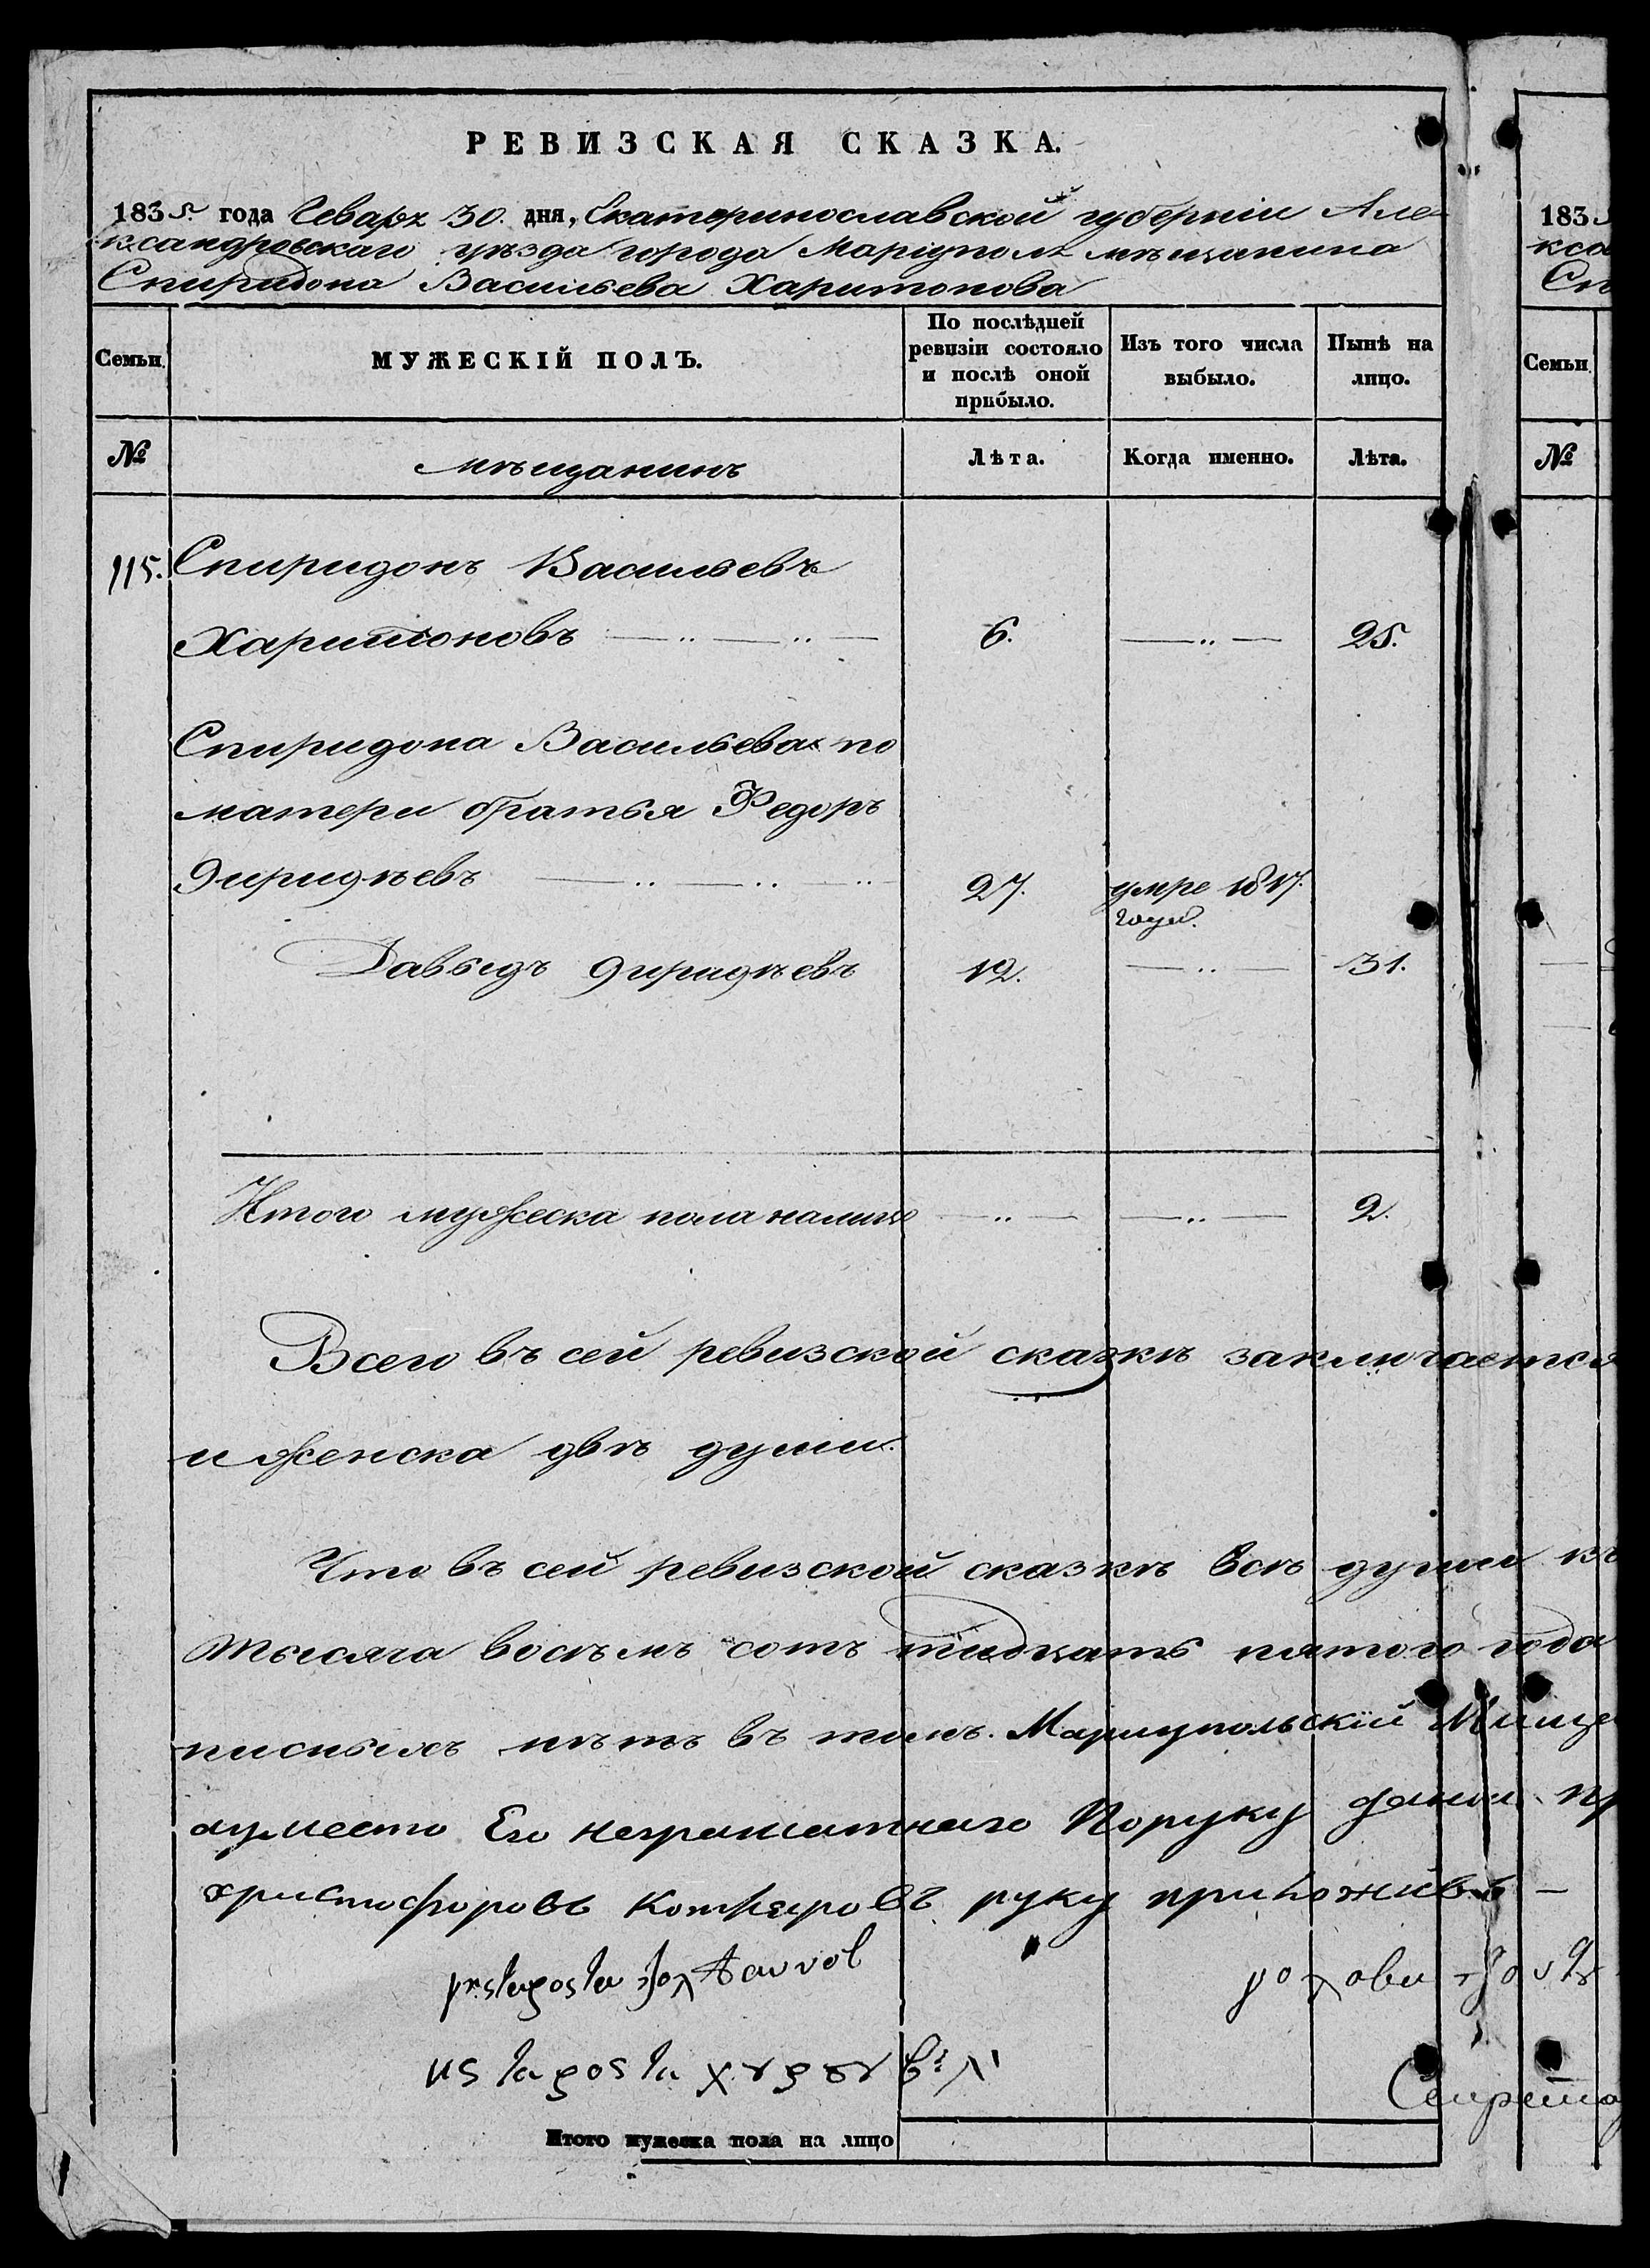 РЕВИЗСКАЯ СКАЗКА.
1835. года Генваря 30. дня, Екатеринославской губерніи Але-
ксандровскаго уѣзда города Маріуполя мѣщанина
Спиридона Васильева Харитонова
Семьи
МУЖЕСКІЙ ПОЛЪ.
По послѣдней ревизіи состояло и послѣ оной прибыло.
Изъ того числа выбыло.
Нынѣ на лицо.
№
мѣщанинъ
Лѣта.
Когда именно.
Лѣта.
115. Спиридонъ Васильевъ
Харитоновъ 6. 25.
Спиридона Васильева по
матери братья Федоръ
27. умре 1817.
года.
Давыдъ 12. 31.
Итого мужеска пола налицо 2.
Всего въ сей ревизской сказкѣ заключается
и женска двѣ души.
Что въ сей ревизской сказкѣ всѣ души
тысяча восѣмъ сотъ тридцать пятого года
нѣтъ въ томъ. Мариупольскій
Его неграматнаго
христофоровъ руку приложивъ —
Секрета
Итого мужеска пола на лицо
183
кса
Сп
Семьи
№